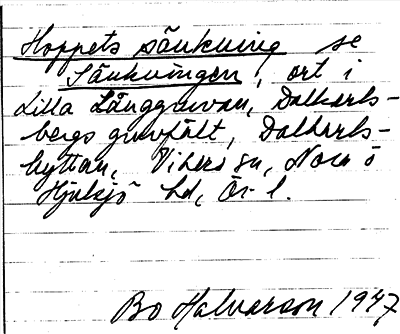 Hoppets sänkning se
Sänkningen, ort i
Lilla Långgruvan, Dalkarls-
bergs gruvfält, Dalkarls-
hyttan, Vikers sn, Nora o
Hjulsjö hd, Ör l.
Bo Halvarson 1947